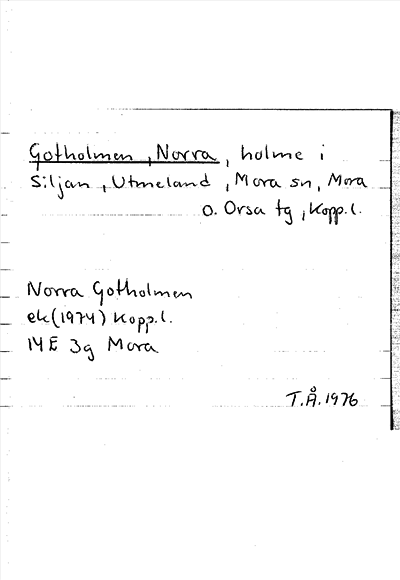 Gotholmen, Norra, holme i
Siljan, Utmeland, Mora sn, Mora
o. Orsa tg, Kopp.l.
Norra Gotholmen
ek(1974) Kopp.l.
14E 3g Mora
T.Å.1976